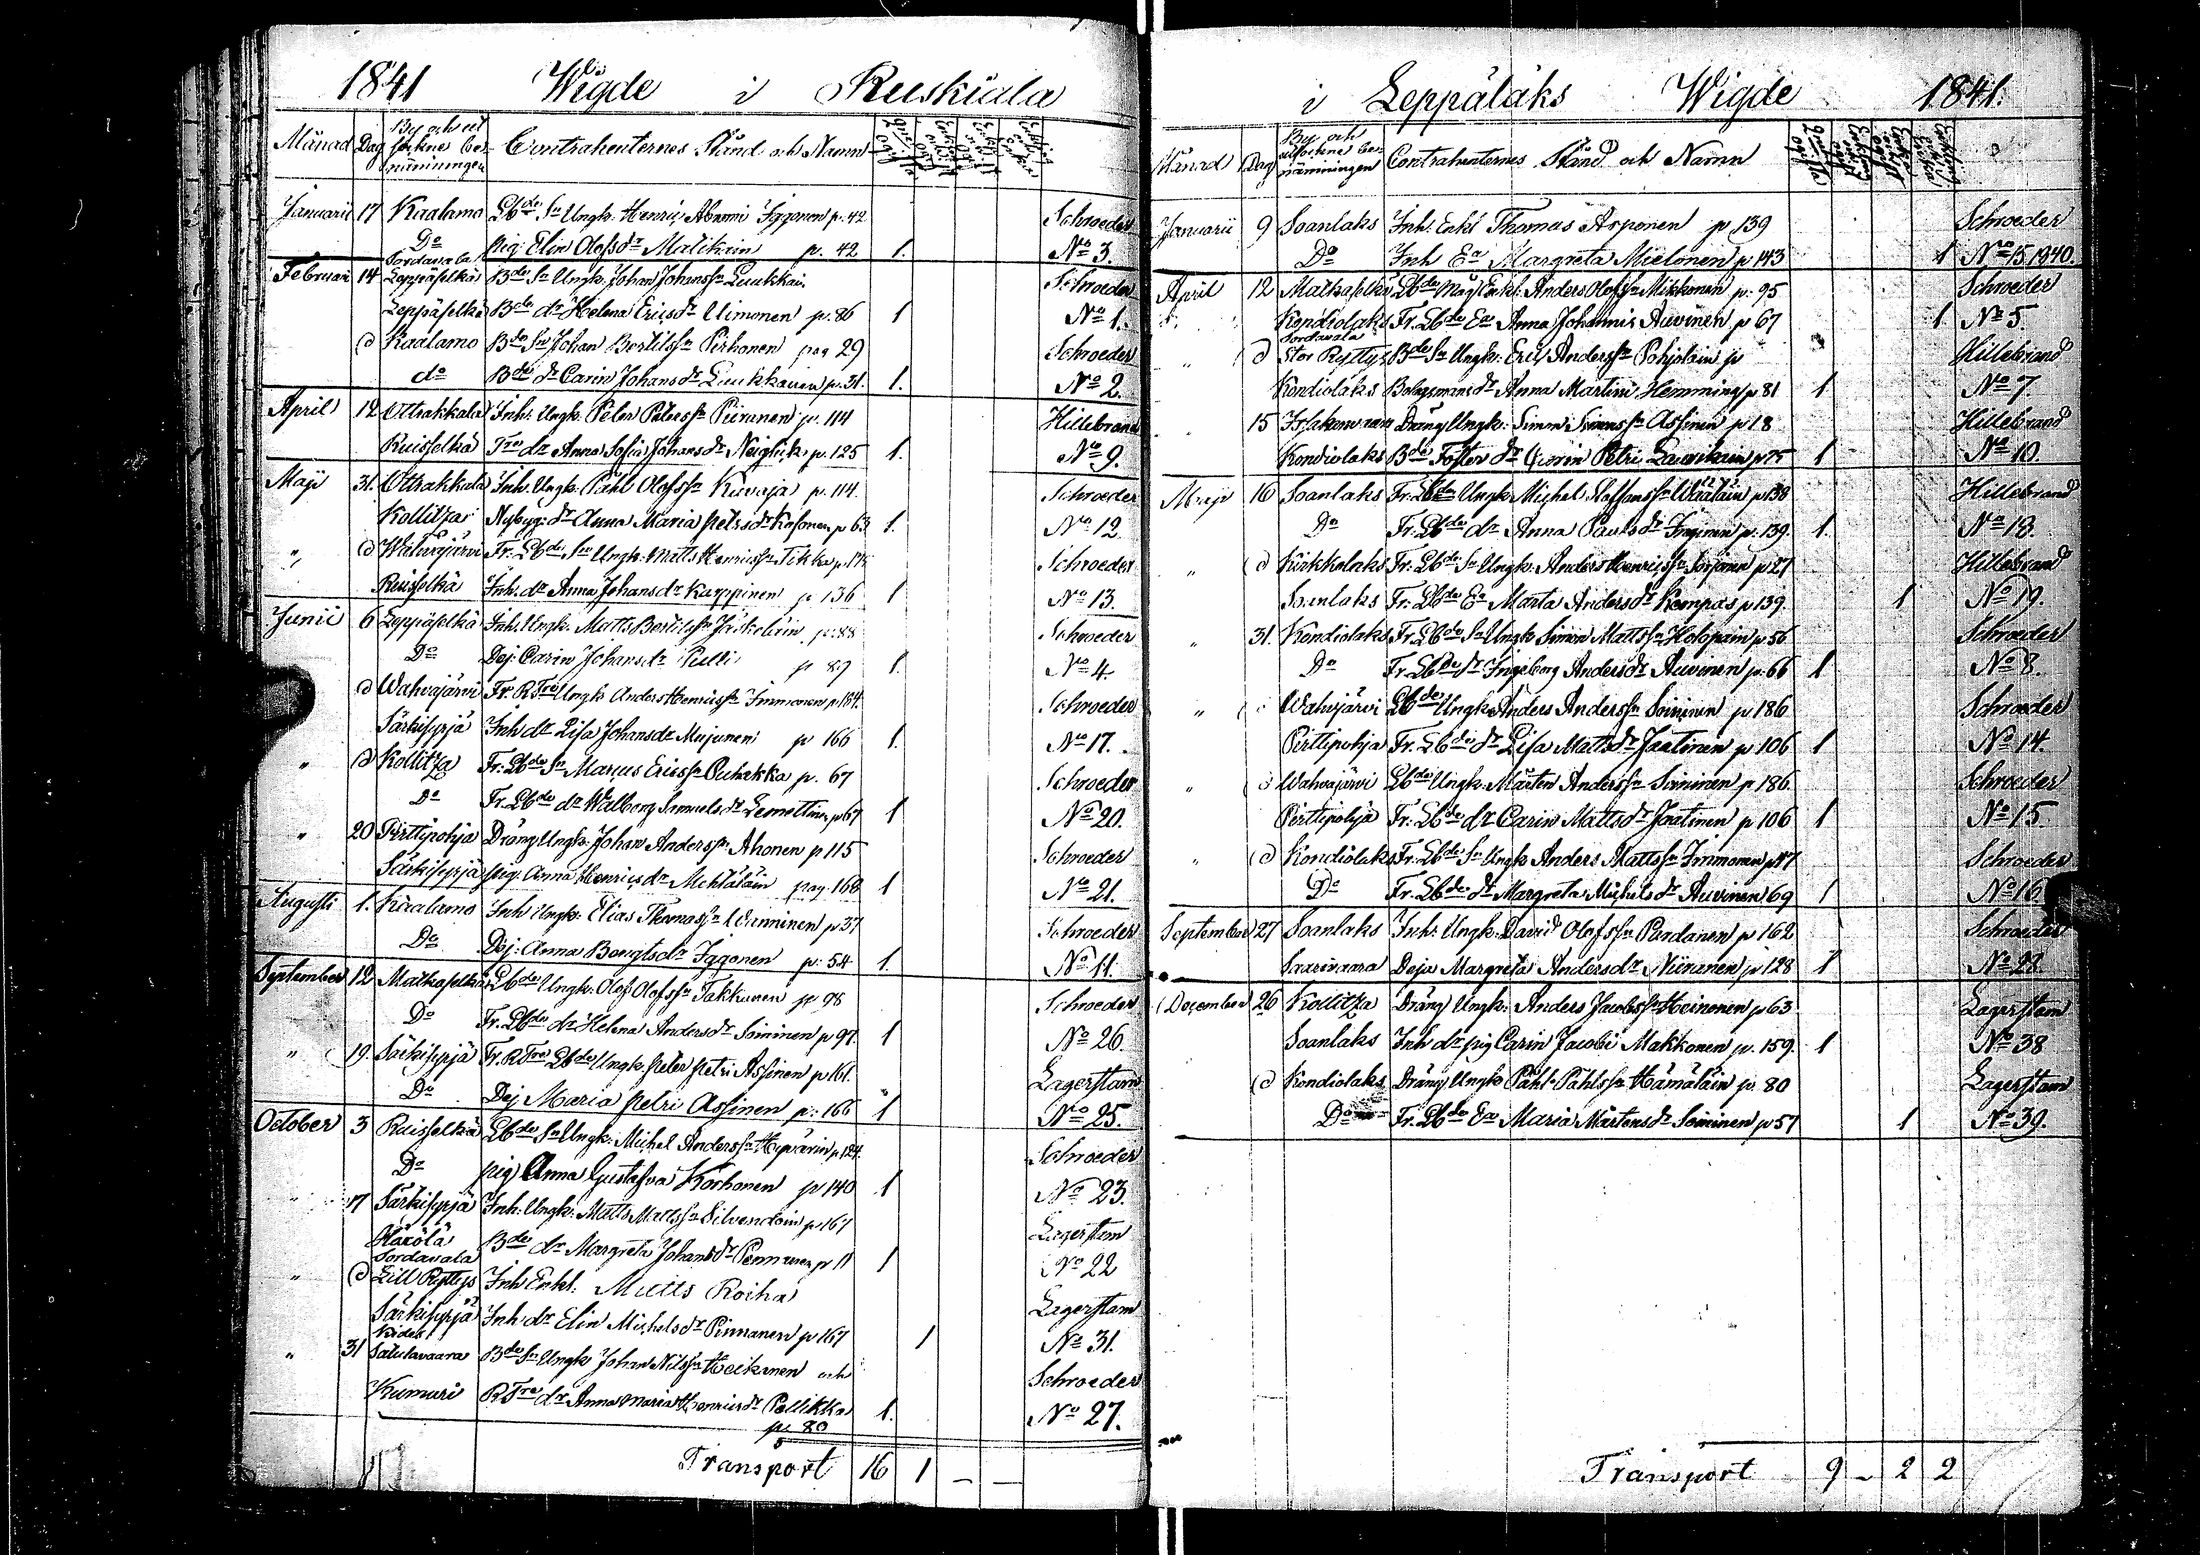 1841 Wigde i Ruskiala
Månad Dag By och el sockne benämningen Contrahenternes Stånd och Namn
Januarii 17 Kaalamo Lbde Sn Ungk. Henric Abrami Iggonen p. 42 Schroeder
Do pig. Elin Olofsdr Matikain p. 42 1. No 3.
Sordavala
Februar 14 Leppäselkä Bde Sn Ungk. Johan Johanssn Luukkain Schroeder
Leppäselkä Bde dr Helena Ericsdr Uimonen p. 86 1 No 1.
d Kaalamo Bde Sn Johan Bertilssn Pirhonen pag 29 Schroeder
do Bde dr Carin Johansdr Luukkainen p. 31. 1. No 2.
April 12 Ottrakkala Inh. Ungk. Peter Peterssn Piiranen p. 114 Hillebrand
Ruisselkä Tre dr Anna Sofia Johansdr Neiglick p. 125 1. No 9.
Maji 31. Ottrakkala Inh. Ungk. Påhl Olofssn Kuvaja p. 114. Schroeder
Kollitza Nybyg. dr Anna Maria Petrsdr Kasonen p 63 1. No 12.
" d Wahvajärvi Fr. Lbde Sn Ungk. Matts Henricssn Tikka Schroeder
Ruisselkä Inh. dr Anna Johansdr Karppinen p 136 1 No 13.
Junii 6 Leppäselkä Inh. Ungk. Matts Bertilssn p. 88 Schroeder
Do Dej. Carin Johansdr Pulli p 87 1. No 4.
d Wahvajärvi Fr. RTre Ungk. Anders Henricssn Immonen p 184. Schroeder
Särkisyrjä Inh dr Lisa Johansdr Mujunen p 166 1. No 17.
" d Kollitza Fr. Lbde Sn Marcus Ericssn Puhakka p. 67 Schroeder
Do Fr. Lbde dr Walborg Samuelsdr Lemettinen p 67 1 No 20.
" 20 Pirttipohja Dräng Ungk. Johan Anderssn Ahonen p 115 Schroeder
Särkisyrjä pig. Anna Henricsdr Mehtäläin pag. 168 1 No 21.
Augusti 1. Kaalamo Inh Ungk. Elias Thomassn p 37 Schroeder
Do Dej. Anna Bengtsdr Iggonen p. 54 1. No 11.
September 12 Matkaselkä Lbde Ungk. Olof Olofssn Takkunen p 98 Schroeder
Do Fr. Lbde dr Helena Andersdr Soininen p 97. 1 No 26.
" 19. Särkisyrjä Fr. RTre Lbde Ungk. Peter Petri Assinen p 161. Lagerstam
Do Dej Maria Petri Assinen p. 166 1 No 25.
October 3 Ruisselkä Lbde Sn Ungk. Michel Anderssn p 124. Schroeder
Do pig Anna Gustafva Korhonen p 140 1 No 23.
" 17 Särkisyrjä Inh. Ungk. Matts Mattssn Silvendoin p 167 Lagerstam
Harölä Bde dr Margreta Johansdr Pennanen p 11 1 No 22
Sordavala
" d Lill Ryttys Inh Enkl. Matts Roiha Lagerstam
Särkisyrjä Inh dr Elin Michelsdr Pinnanen p 167 1 No 31.
Kides
" 31 Satulavaara Bde Sn Ungk Johan Nilssn Heikinen och Schroeder
Kumuri RTre dr Anna Maria Henricsdr Pellikka 1. No 27.
p. 80
Transport 16 1 – –
i Leppälaks Wigde 1841.
Månad Dag By och sockne benämningen Contrahenternes Stånd och Namn
Januarii 9 Soanlaks Inh. Enkl Thomas Arponen p 139 Schroeder
Do Inh Ea Margreta Mielonen p 143 1 No 15 1840.
April 12 Matkaselkä Lbde Måg Enkl. Anders Olofssn Mikkonen p. 95 Schroeder
Kondiolaks Fr. Lbde Ea Anna Johannis Auvinen p 67 1 No 5.
Sordavala
" d Stor Ryttys Bde Sn Ungk. Eric Anderssn Pohjolain p Hillebrand
Kondiolaks Bolagsmans dr Anna Martini Hemming p 81 1 No 7.
" 15 Dräng Ungk. Simon Simonssn Assinen p 18 Hillebrand
Kondiolaks Bde Foster dr Carin Petri Laurikain p 75 1 No 10.
Maji 16 Soanlaks Fr. Lbde Ungk Michel Staffanssn p 138 Hillebrand
Do Fr. Lbde dr Anna Paulsdr p. 139. 1. No 18.
" d Kirkkolaks Fr. Lbde Sn Ungk. Anders Henricssn Sorjonen p 27 Hillebrand
Soanlaks Fr. Lbde Ea Marta Andersdr Kempas p 139. 1 No 19.
" 31. Kondiolaks Fr. Lbde Sn Ungk Simon Mattssn Holopain p 56 Schroeder
Do Fr. Lbde dr Ingeborg Andersdr Auvinen p. 66 1 No 8.
" Wahvajärvi Lbde Ungk Anders Anderssn Soininen p 186 Schroeder
Pirttipohja Fr. Lbde dr Lisa Mattsdr Jaatinen p 106 1 No 14.
" d Wahvajärvi Lbde Ungk. Mårten Anderssn Soininen p 186. Schroeder
Pirttipohja Fr. Lbde dr Carin Mattsdr Jaatinen p 106 1 No 15.
" d Kondiolaks Fr. Lbde Sn Ungk Anders Mattssn Immonen Schroeder
Do Fr. Lbde dr Margreta Michelsdr Auvinen 69 1 No 16
September 27 Soanlaks Inh. Ungk. David Olofssn Pardanen p 162 Schroeder
Saarivaara Deja Margreta Andersdr Niiranen p 128 1 No 28.
December 26 Kollitza Dräng Ungk. Anders Jacobssn Heinonen p 63 Lagerstam
Soanlaks Inh dr pig Carin Jacobi Makkonen p. 159. 1 No 38
d Kondiolaks Dräng Ungk Påhl Påhlssn Hämäläin p. 80 Lagerstam
Do Fr. Lbde Ea Maria Mårtensdr Soininen p 57 1 No 39.
Transport 9 – 2 2